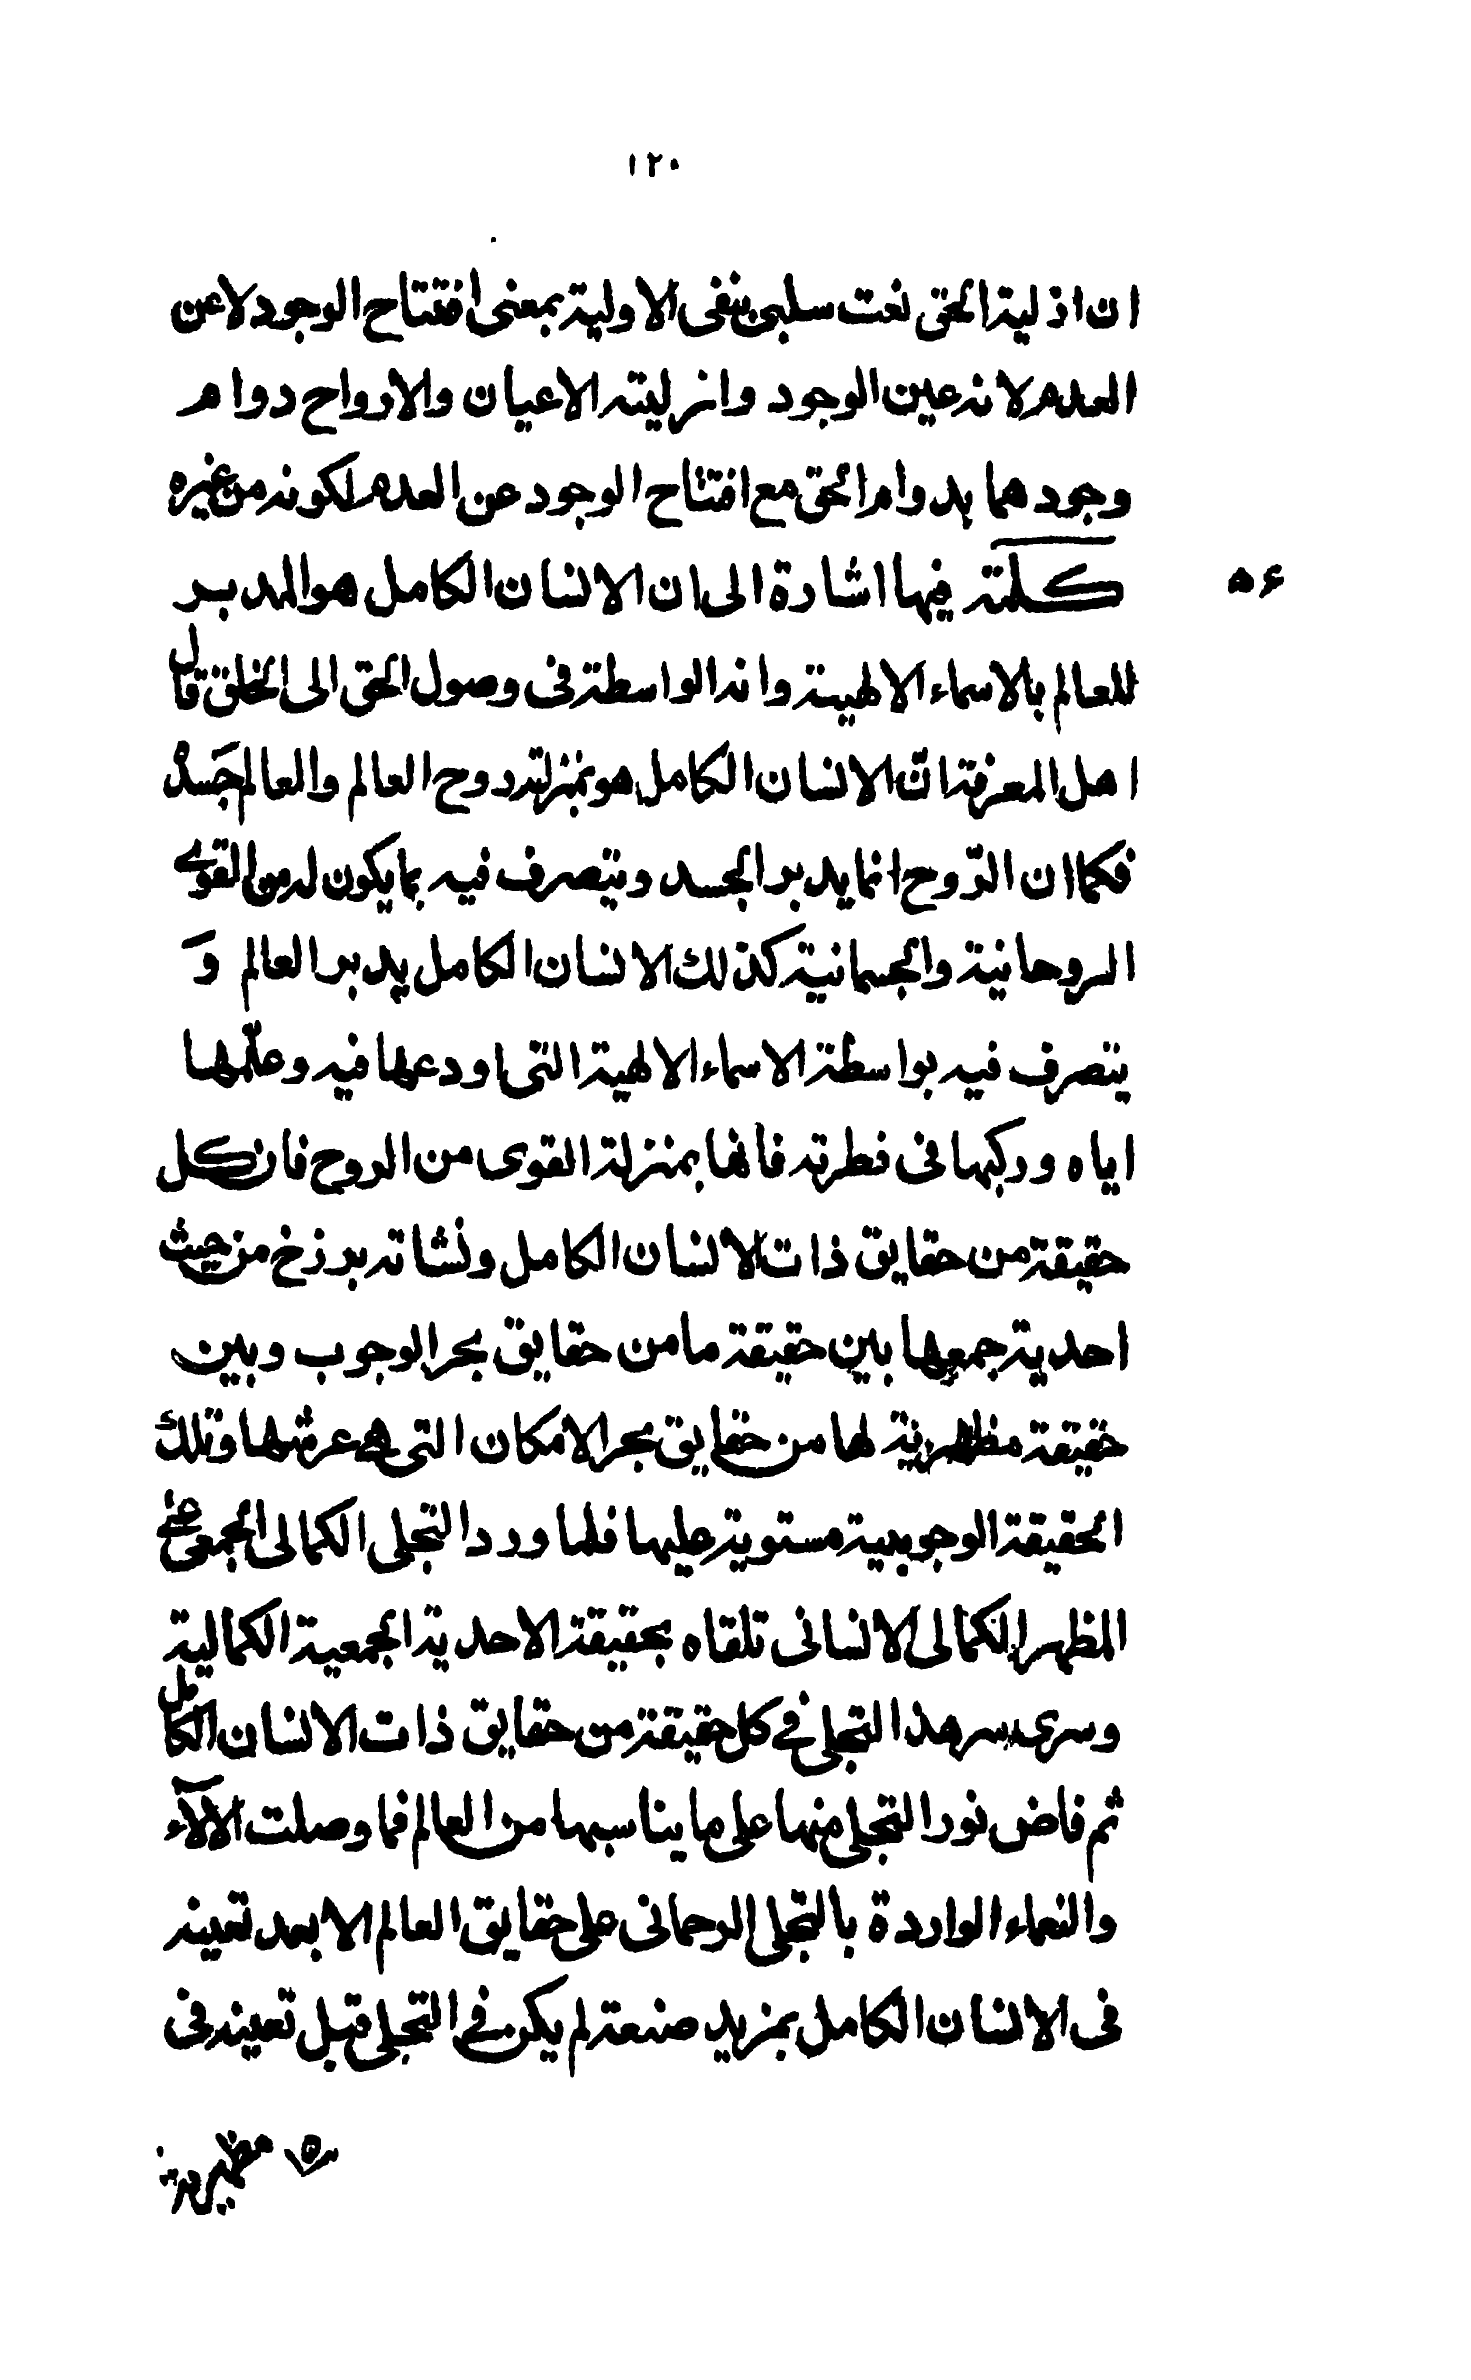 ١٢٠
ان ازلية الحق نعت سلبى ينفى الاولية بمعنى افتتاح الوجود لا عن
العدم لانه عين الوجود وازلية الاعيان والارواح دوام
وجودهما بدوام الحق مع افتتاح الوجود عن العدم لكونه من غيره
٥۶
كلمة فيها اشارة الى ان الانسان الكامل هو المدبر
للعالم بالاسماء الالهية وانه الواسطة فى وصول الحق الى الخلق قال
اهل المعرفة انّ الانسان الكامل هو بمنزلة روح العالم والعالم جَسدْ
فكما ان الرّوح انما يدبر الجسد ويتصرف فيه بما يكون له من القوى
الروحانية والجسمانية كذلك الانسان الكامل يدبر العالم وَ
يتصرف فيه بواسطة الاسماء الالهية التى اودعها فيه وعلّمها
اياه وركبها فى فطرته فانها بمنزلة القوى من الروح فان كل
حقيقة من حقايق ذات الانسان الكامل ونشاته برزخ من حيث
احدية جمعها بين حقيقة ما من حقايق بحر الوجوب وبين
حقيقة مظهرية لها من حقايق بحر الامكان التى هى عرشها وتلك
الحقيقة الوجوبية مستوية عليها فلما ورد التجلى الكمالى الجمعى على
المظهر الكمالى الانسانى تلقاه بحقيقة الاحدية الجمعية الكمالية
وسرى سر هذا التجلى فى كل حقيقة من حقايق ذات الانسان الكامل
ثم فاض نور التجلى منها على ما يناسبها من العالم فما وصلت الآلآء
والنعماء الواردة بالتجلى الرحمانى على حقايق العالم الا بعد تعينه
فى الانسان الكامل بمزيد صنعة لم يكن فى التجلى قبل تعينه فى